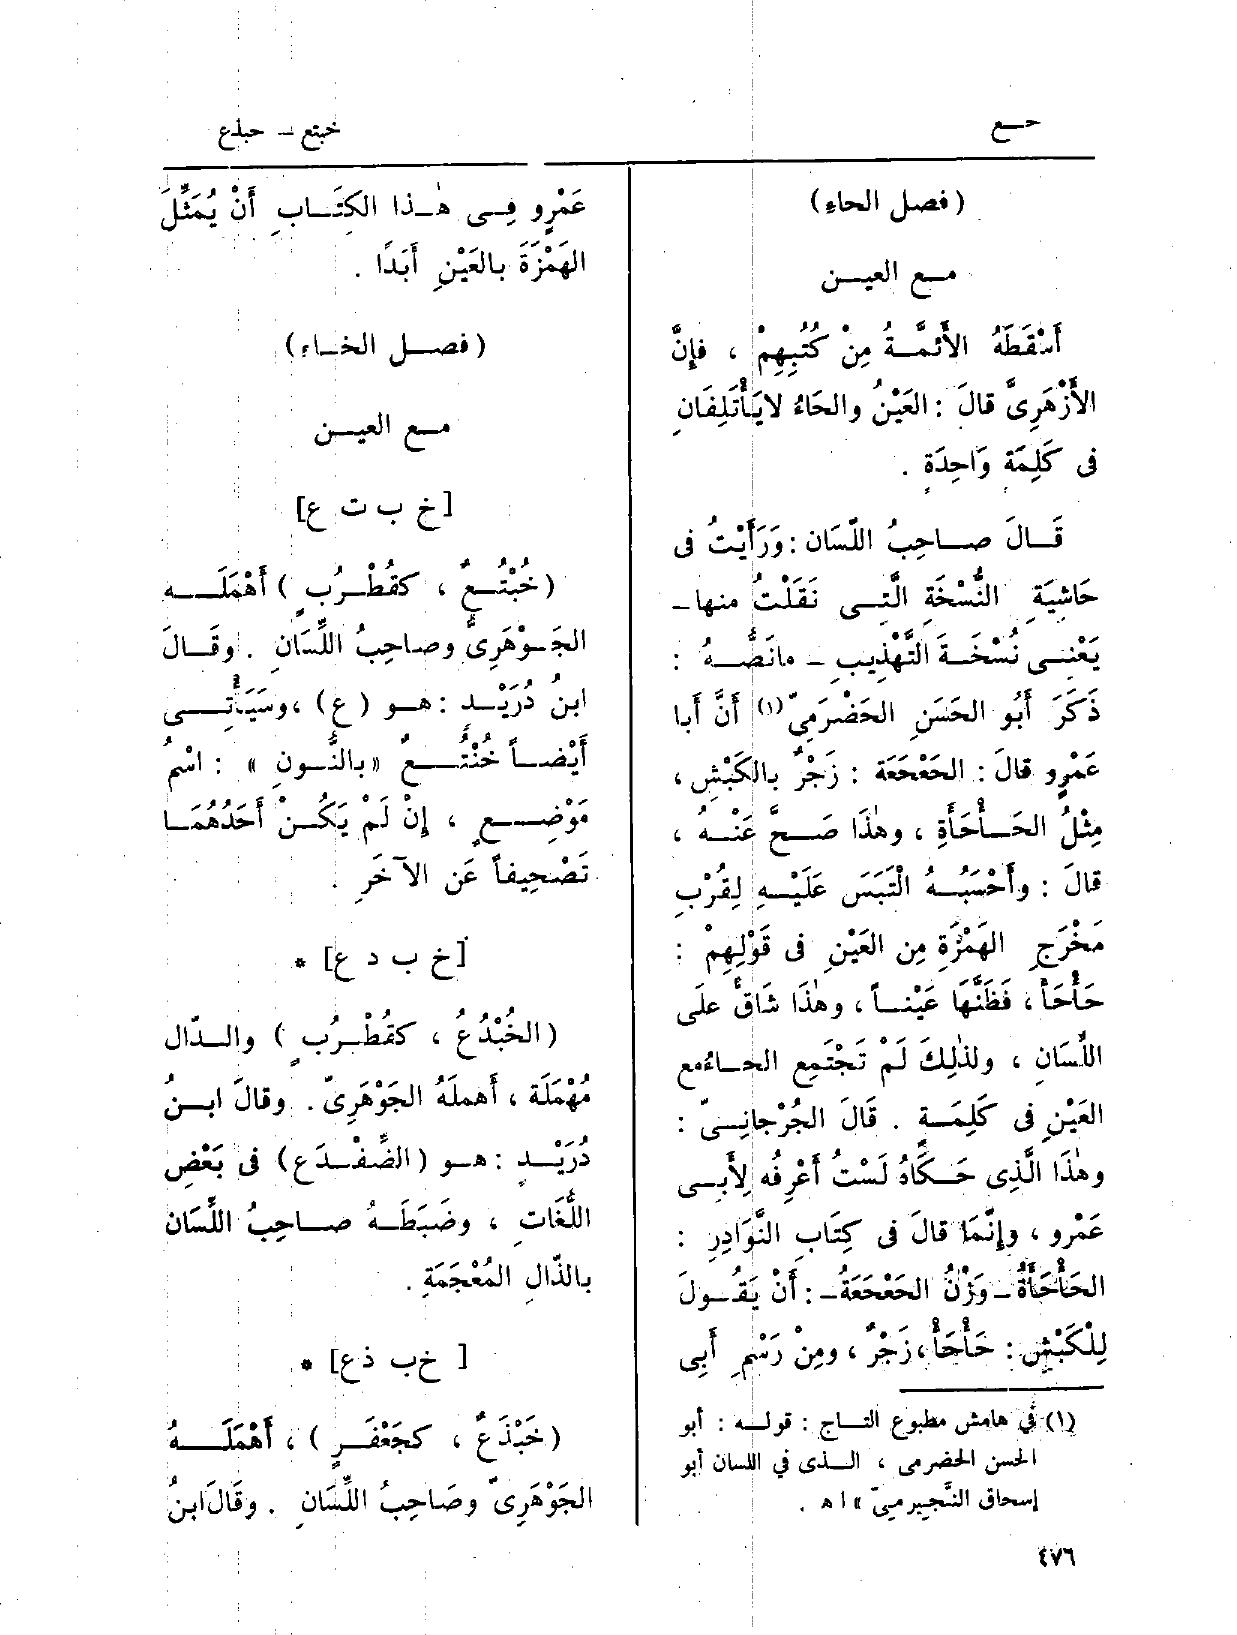 حـع
خبتع – حبلع
(فصل الحاء)
مـع العيـن
أَسْقَطَهُ الأَئمَّـةُ مِنْ كُتُبِهِمْ ، فإنَّ
الأَزْهَرِىَّ قالَ : العَيْنُ والحَاءُ لايَأْتَلِفَانِ
فى كَلِمَةٍ وَاحِدَةٍ .
قَـالَ صـاحِبُ اللّسَان : وَرَأَيْتُ فى
حَاشِيَةِ النُّسْخَةِ الَّتِـى نَقَلْتُ منها–
يَعْنِـى نُسْخَـةَ التَّهْذِيبِ – مانَصُّـهُ :
ذَكَرَ أَبُو الحَسَنِ الحَضْرَمِىّ(١) أَنَّ أَبا
عَمْرٍو قالَ : الحَعْحَعَة : زَجْرٌ بالكَبْشِ ،
مِثْلُ الحَـأْحَأَةِ ، وهٰذَا صَـحَّ عَنْـهُ ،
قالَ : وأَحْسَبُـهُ الْتَبَسَ عَلَيْـهِ لِقُرْبِ
مَخْرَجِ الهَمْزَةِ مِن العَيْنِ فى قَوْلِهِمْ :
حَأْحَأْ ، فَظَنَّهَا عَيْنـاً ، وهٰذَا شَاقٌّ علَى
اللِّسَانِ ، ولذٰلِكَ لَمْ تَجْتَمِع الحـاءُمع
العَيْنِ فى كَلِمَـةٍ . قالَ الجُرْجانِـىّ :
وهٰذَا الَّذِى حَـكَّاهُ لَسْتُ أَعْرِفُه لِأَبِـى
عَمْرٍو ، وإنَّمَا قالَ فى كِتَابِ النَّوَادِرِ :
الحَأْحَأَةُ – وَزْنُ الحَعْحَعَةُ – : أَنْ يَقُـولَ
لِلْكَبْشِ : حَأْحَأْ ، زَجْرٌ ، ومِنْ رَسْمِ أَبِى
(١) في هامش مطبوع التـاج : قولـه : أبو
الحسن الحضرمى ، الـذى في اللسان أبو
إسحاق النَّجِيرمىّ » ا ه .
عَمْرٍو فِـى هٰـذا الكِتَـابِ أَنْ يُمَثِّلَ
الهَمْزَةَ بالعَيْنِ أَبَدًا .
(فصـل الخـاء)
مـع العيـن
[خ ب ت ع]
(خُبْتُـعٌ ، كقُطْـرُبٍ ) أَهْمَلَـه
الجَـوْهَرِىُّ وصاحِبُ اللِّسَانِ . وقَـالَ
ابنُ دُرَيْـدٍ : هـو (ع) ، وسَيَأْتِـى
أَيْضـاً خُنْتُـعٌ «بالنُّـون» : اسْمُ
مَوْضِـعٍ ، إنْ لَمْ يَكُـنْ أَحَدُهُمَـا
تَصْحِيفاً عَن الآخَرِ .
[خ ب د ع] *
(الخُبْدُعُ ، كقُطْـرُبٍ ) والـدّال
مُهْمَلَة ، أَهملَهُ الجَوْهَرِىّ . وقالَ ابـنُ
دُرَيْـدٍ : هـو (الضِّفْـدَع) فى بَعْضِ
اللُّغَاتِ ، وضَبَطَـهُ صـاحِبُ اللِّسَان
بالذّالِ المُعْجَمَةِ .
[ خ ب ذ ع] *
(خَبْذَعٌ ، كجَعْفَـرٍ ) ، أَهْمَلَـهُ
الجَوْهَرِىّ وصَاحِبُ اللِّسَانِ . وقَالَ ابنُ
٤٧٦